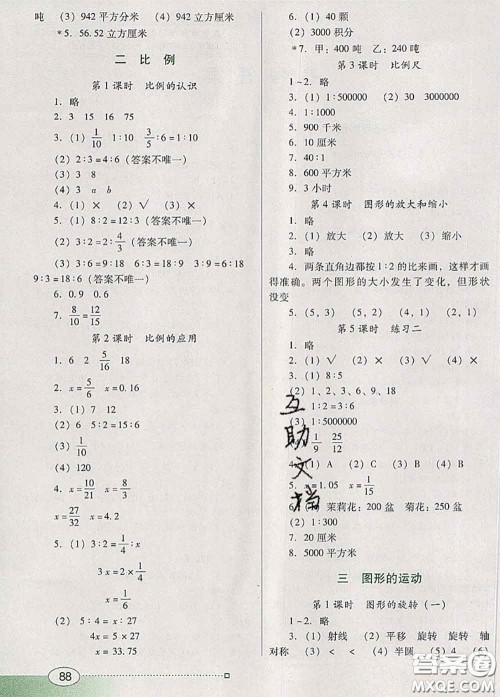 吨　(3) 942 平方分米　(4) 942 立方厘米
*5. 56.52 立方厘米
二 比 例
第 1 课时　比例的认识
1. 略
2. 3　15　16　75
3. (1) 1/10　1:10　3/5:6=1:10
(2) 2:3=4:6 (答案不唯一)
(3) 3　8
4. (3) 3　a　b
4. (1) ×　(2) √　(3) ×
5. (1) 8:2=12:3 (答案不唯一)
(2) 3:2=2:4/3 (答案不唯一)
(3) 3:9=6:18　3:6=9:18　9:3=18:6 (答案不唯一)
6. 0.9　0.9
7. 8/10=12/15
第 2 课时　比例的应用
1. 6　2　18　25
2. x=5/6　x=0.16
3. (2) 6　5:2=15:6
(3) 1/10
(4) 120
4. x=10/21　x=8/3
x=27/32　x=4
5. (1) 3:2=1/2:x
3x=2×1/2
x=1/3
(2) 5:4=x:27
4x=5×27
x=33.75
88
5. (1) 40 颗
(2) 3000 积分
*7. 甲：400 吨　乙：240 吨
第 3 课时　比例尺
1~2. 略
3. (1) 1:500000　(2) 30　3000000
4. 1:1000
5. 900 千米
6. 略
7. 略
8. 600 平方米
9. 3 小时
第 4 课时　图形的放大和缩小
1. 略
2. (1) 放大　(2) 放大　(3) 缩小
3. 略
4. 两条直角边都按 1:2 的比来画，这样才画
得准确。两个图形的大小发生了变化，但形状
没变
5. (5, 3)　(5, 1)　(9, 1)
第 5 课时　练习二
1. 略
2. (1) √　(2) ×　(3) √　(4) ×
3. (1) 8:5
(2) 1、2、3、6、9、18
(2) 1:2=3:6
(3) 1:5000000
1/9　25/12
4. (1) A　(2) C　(3) B　(4) D
5. x=1.05　x=1/15
(2) 茉莉花：200 盆　菊花：250 盆
7. 20 厘米
8. 5000 平方米
三　图形的运动
第 1 课时　图形的旋转（一）
1. 略
3. (1) 射线　(2) 平移　旋转　旋转　轴
对称　(3) <　<　(4) 半圆　(5) 4　(6) 6
互助文档
答案圈
MXQE.COM